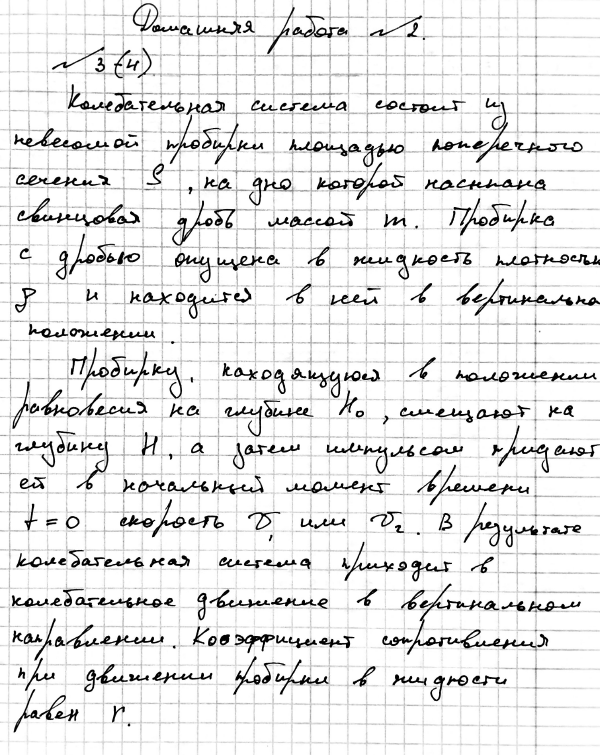 Домашняя работа №2.
№3-(4)
Колебательная система состоит из
невесомой пробирки площадью поперечного
сечения S, на дно которой насыпана
свинцовая дробь массой m. Пробирка
с дробью опущена в жидкость плотностью
ρ и находится в ней в вертикально
положении.
Пробирку, находящуюся в положении
равновесия на глубине H₀, смещают на
глубину H, а затем импульсом придают
ей в начальный момент времени
t=0 скорость υ₁ или υ₂. В результате
колебательная система приходит в
колебательное движение в вертикальном
направлении. Коэффициент сопротивления
при движении пробирки в жидкости
равен r.